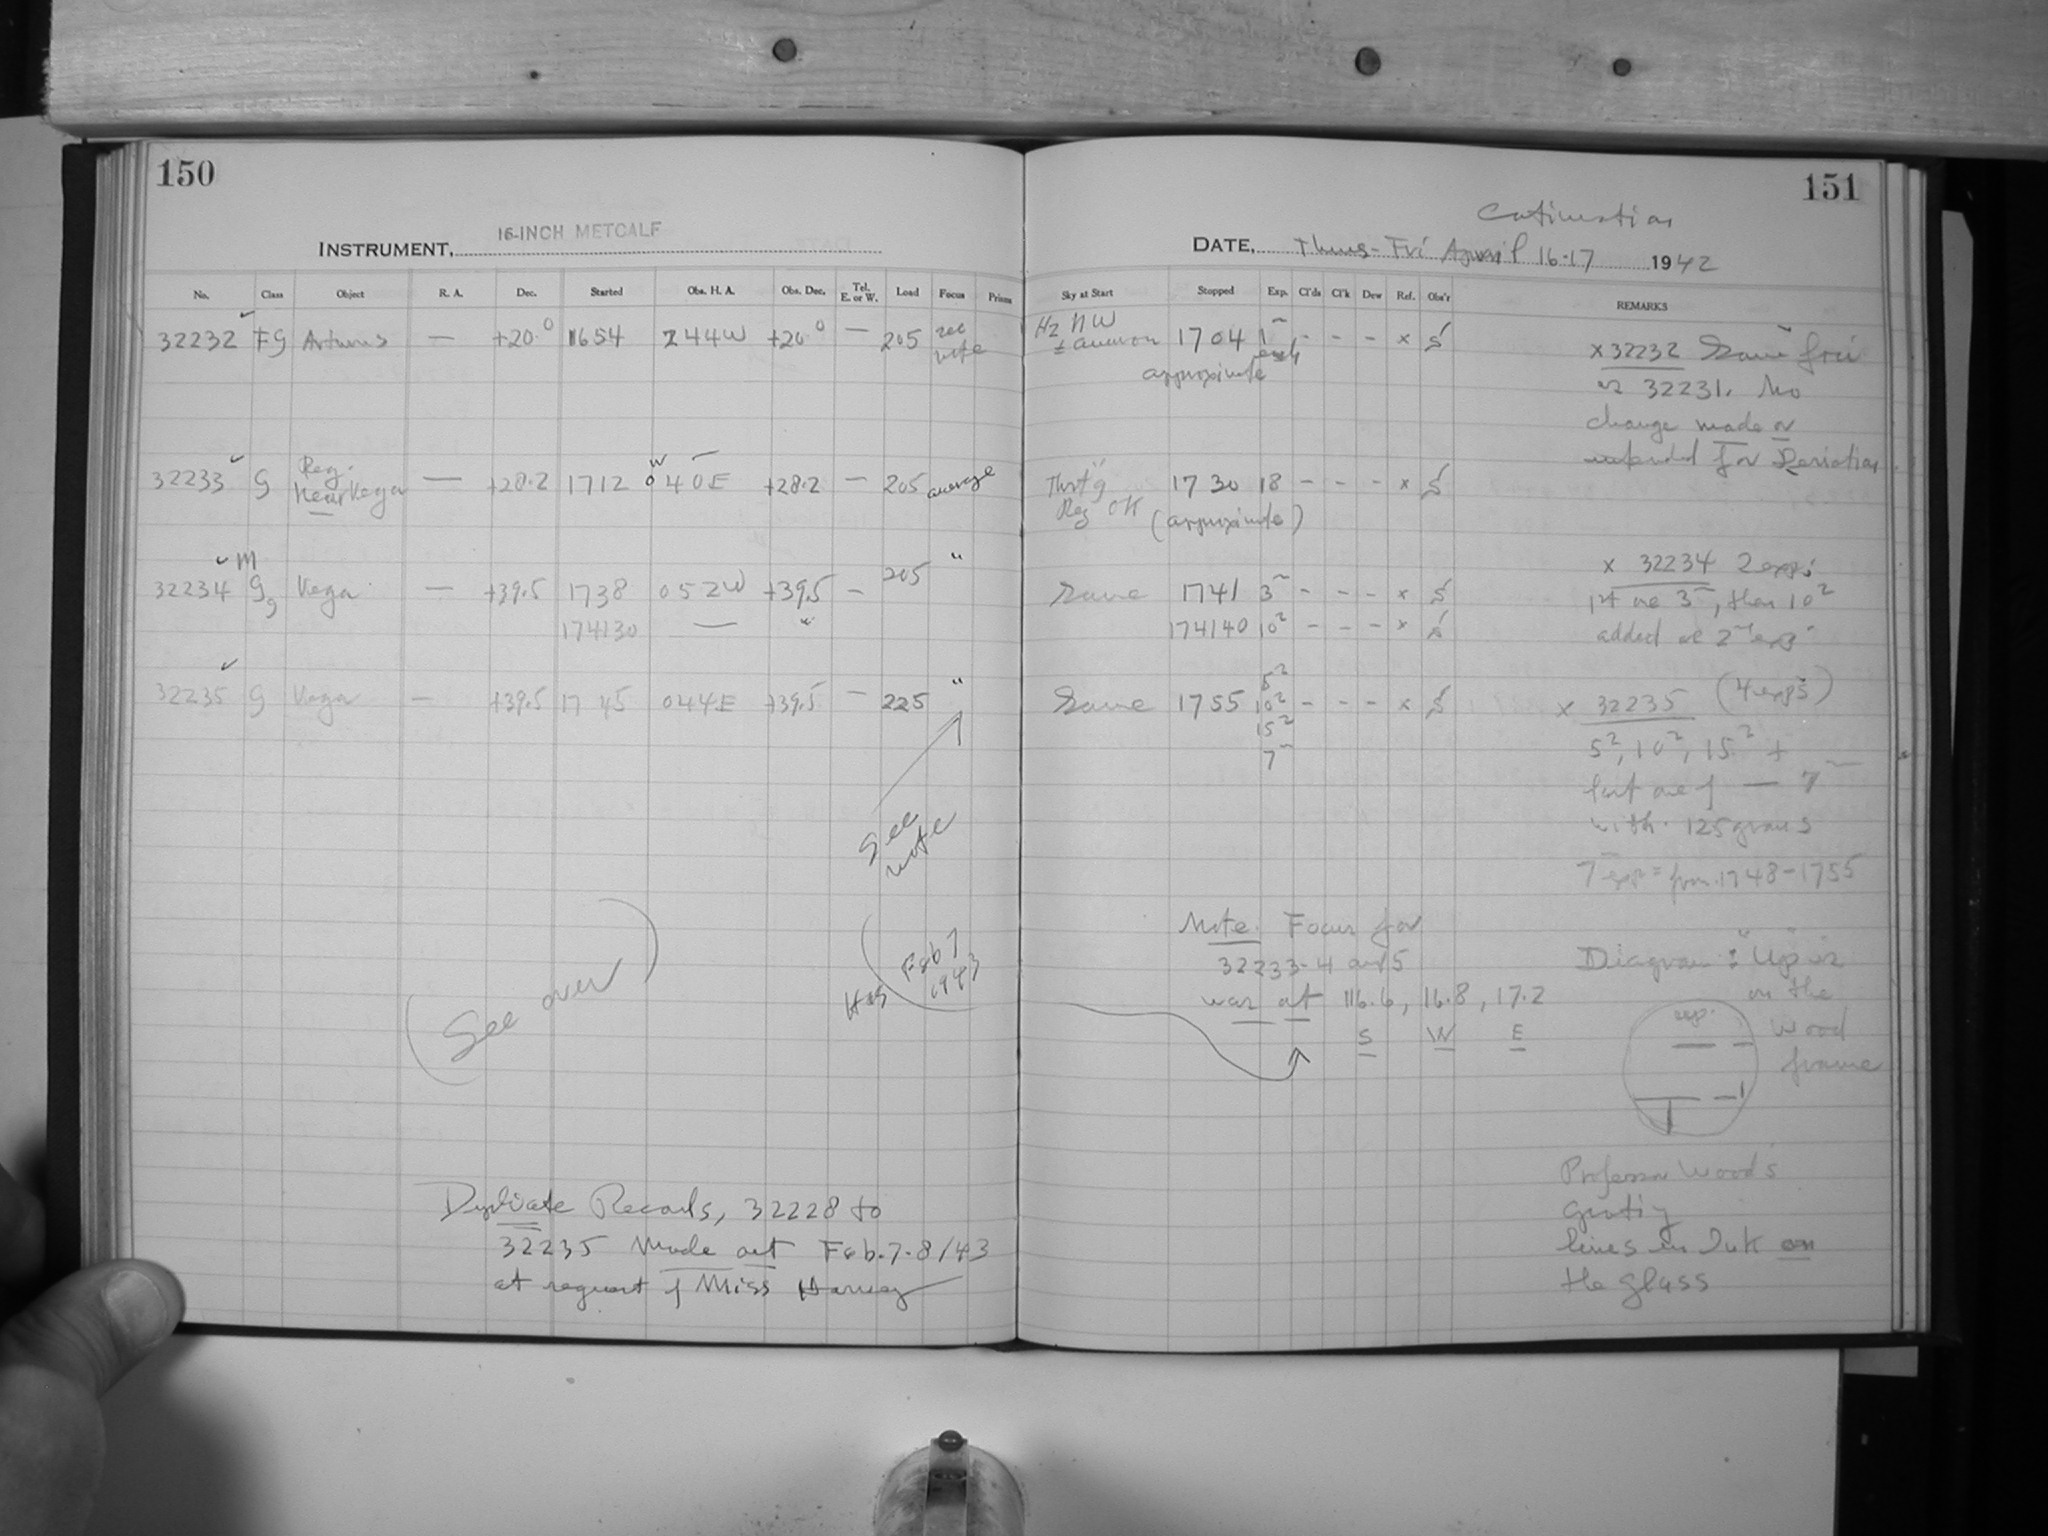 150
16-INCH METCALF
INSTRUMENT,
No. Class Object R. A. Dec. Started Obs. H. A. Obs. Dec. Tel. E. or W. Load Focus Prism
32232 FG — +20° 1654 244W +20° — 205 see note
32233 G Reg. Near Vega — +28.2 1712 0 40E +28.2 — 205 average
w
M
32234 G Vega — +39.5 1738 052W +39.5 — 205 "
174130 — "
32235 G Vega — +39.5 1745 044E +39.5 — 225 "
See note
(See over)
Feb 7 1943
Duplicate Records, 32228 to
32235 Made out Feb. 7-8/43
at request of Miss Harvey
151
DATE, Thurs-Fri April 16-17 1942
Sky at Start Stopped Exp. Cl'ds Cl'k Dew Ref. Obs'r REMARKS
Hz NW 1704 1 each - - - x
approximate
Reg OK 1730 18 - - - x
(approximate)
Same 1741 3 - - - x
174140 10 - - - x
Same 1755 5 10 15 7 - - - x
x 32232 Same
as 32231. No
change made or
for
x 32234 2 exps
1st one 3, then 10
added as 2nd exp
x 32235 (4 exps)
5, 10, 15 +
last one of — 7
with 125 grams
7 exp = from 1748-1755
Note. Focus for
32233-4 and 5
was at 16.6, 16.8, 17.2
S W E
Diagram: "Up" is
on the
wood
frame
Professor Wood's
Grating
lines in Ink on
the glass